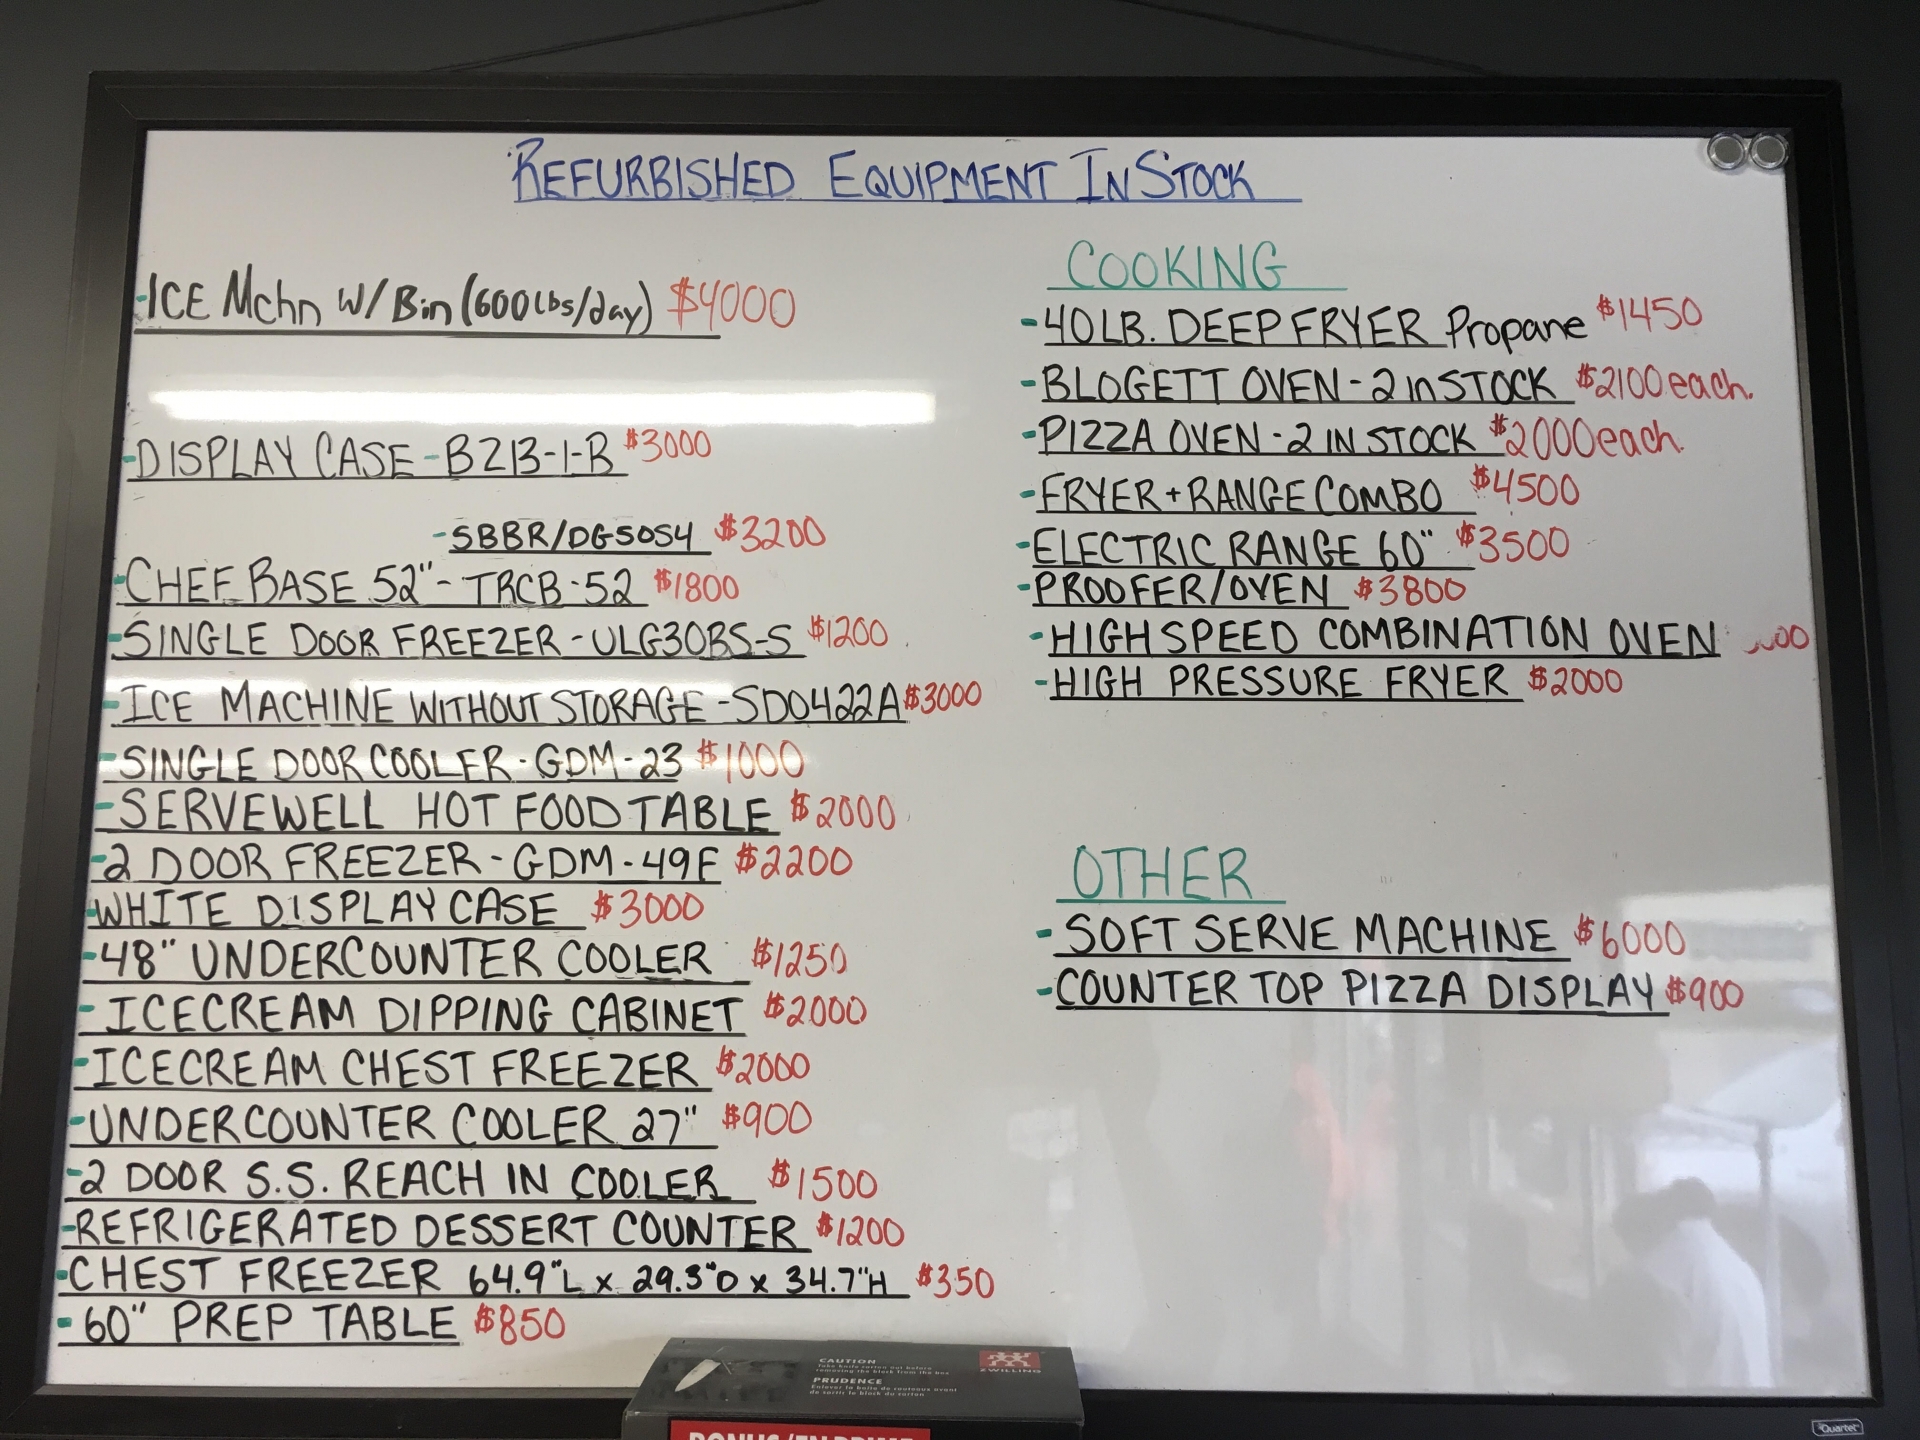 REFURBISHED EQUIPMENT IN STOCK
-ICE Mchn W/ Bin (600lbs/day) $4000
-DISPLAY CASE - BZ13-1-B $3000
-SBBR/DG50S4 $3200
-CHEF BASE 52" - TRCB-52 $1800
-SINGLE DOOR FREEZER - ULG30BS-S $1200
-ICE MACHINE WITHOUT STORAGE - SD0422A $3000
-SINGLE DOOR COOLER - GDM-23 $1000
-SERVEWELL HOT FOOD TABLE $2000
-2 DOOR FREEZER - GDM-49F $2200
-WHITE DISPLAY CASE $3000
-48" UNDERCOUNTER COOLER $1250
-ICECREAM DIPPING CABINET $2000
-ICECREAM CHEST FREEZER $2000
-UNDERCOUNTER COOLER 27" $900
-2 DOOR S.S. REACH IN COOLER $1500
-REFRIGERATED DESSERT COUNTER $1200
-CHEST FREEZER 64.9"L x 29.3"D x 34.7"H $350
-60" PREP TABLE $850
COOKING
-40LB. DEEP FRYER Propane $1450
-BLOGETT OVEN - 2 in STOCK $2100 each.
-PIZZA OVEN - 2 IN STOCK $2000 each.
-FRYER + RANGE COMBO $4500
-ELECTRIC RANGE 60" $3500
-PROOFER/OVEN $3800
-HIGH SPEED COMBINATION OVEN
-HIGH PRESSURE FRYER $2000
OTHER
-SOFT SERVE MACHINE $6000
-COUNTER TOP PIZZA DISPLAY $900
CAUTION
Take knife carton out before
removing the block from the box
PRUDENCE
Enlever la boîte de couteaux avant
de sortir le bloc du carton
ZWILLING
Quartet